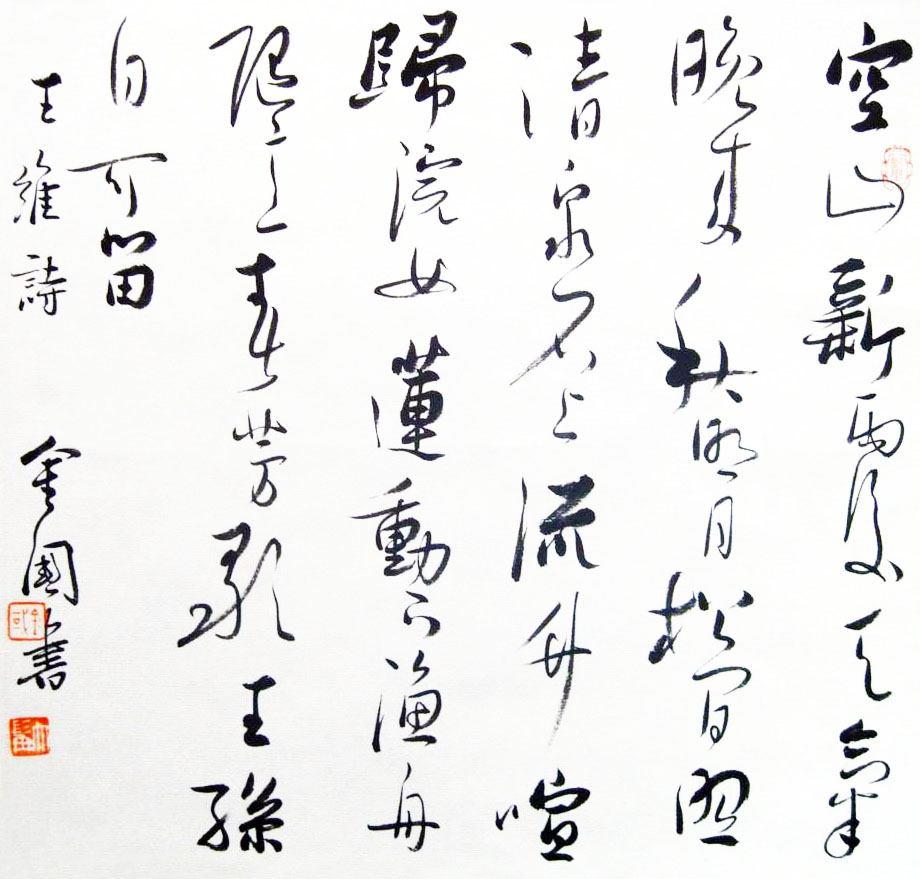 空山新雨後天氣
晚來秋明月松間照
清泉石上流竹喧
歸浣女蓮動下漁舟
隨意春芳歇王孫
自可留
王維詩 金國書